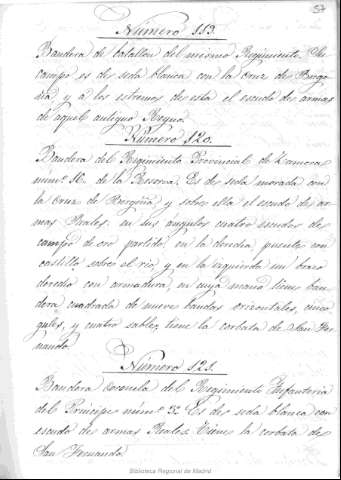 57
Número 119.
Bandera de batallon del mismo Regimiento. Su
campo es de seda blanca con la Cruz de Borgo-
ña, y á los estremos de esta el escudo de armas
de aquel antiguo Reyno.
Número 120.
Bandera del Regimiento Provincial de Zamora
núm.º 16. de la Reserva. Es de seda morada con
la Cruz de Borgoña y sobre ella el escudo de ar-
mas Reales, en sus ángulos cuatro escudos de
campo de oro partido, en la derecha puente con
castillo sobre el rio, y en la izquierda un brazo
derecho con armadura, en cuya mano tiene ban-
dera cuadrada de nueve bandas orizontales, cinco
gules, y cuatro sable, tiene la corbata de San Fer-
nando.
Número 121.
Bandera Coronela del Regimiento Infanteria
del Principe núm.º 32. Es de seda blanca con
escudo de armas Reales. Tiene la corbata de
San Fernando
Biblioteca Regional de Madrid